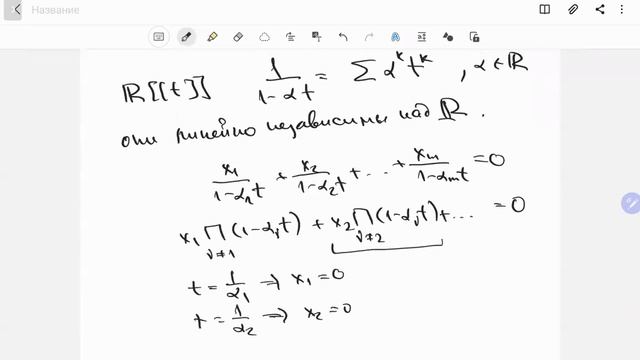 Название
ℝ[[t]] 1/(1-αt) = Σ α^k t^k , α∈ℝ
они линейно независимы над ℝ.
x₁/(1-α₁t) + x₂/(1-α₂t) + ... + xₘ/(1-αₘt) = 0
x₁ ∏_{ν≠1} (1-α_ν t) + x₂ ∏_{ν≠2} (1-α_ν t) + ... = 0
t = 1/α₁ ⇒ x₁ = 0
t = 1/α₂ ⇒ x₂ = 0